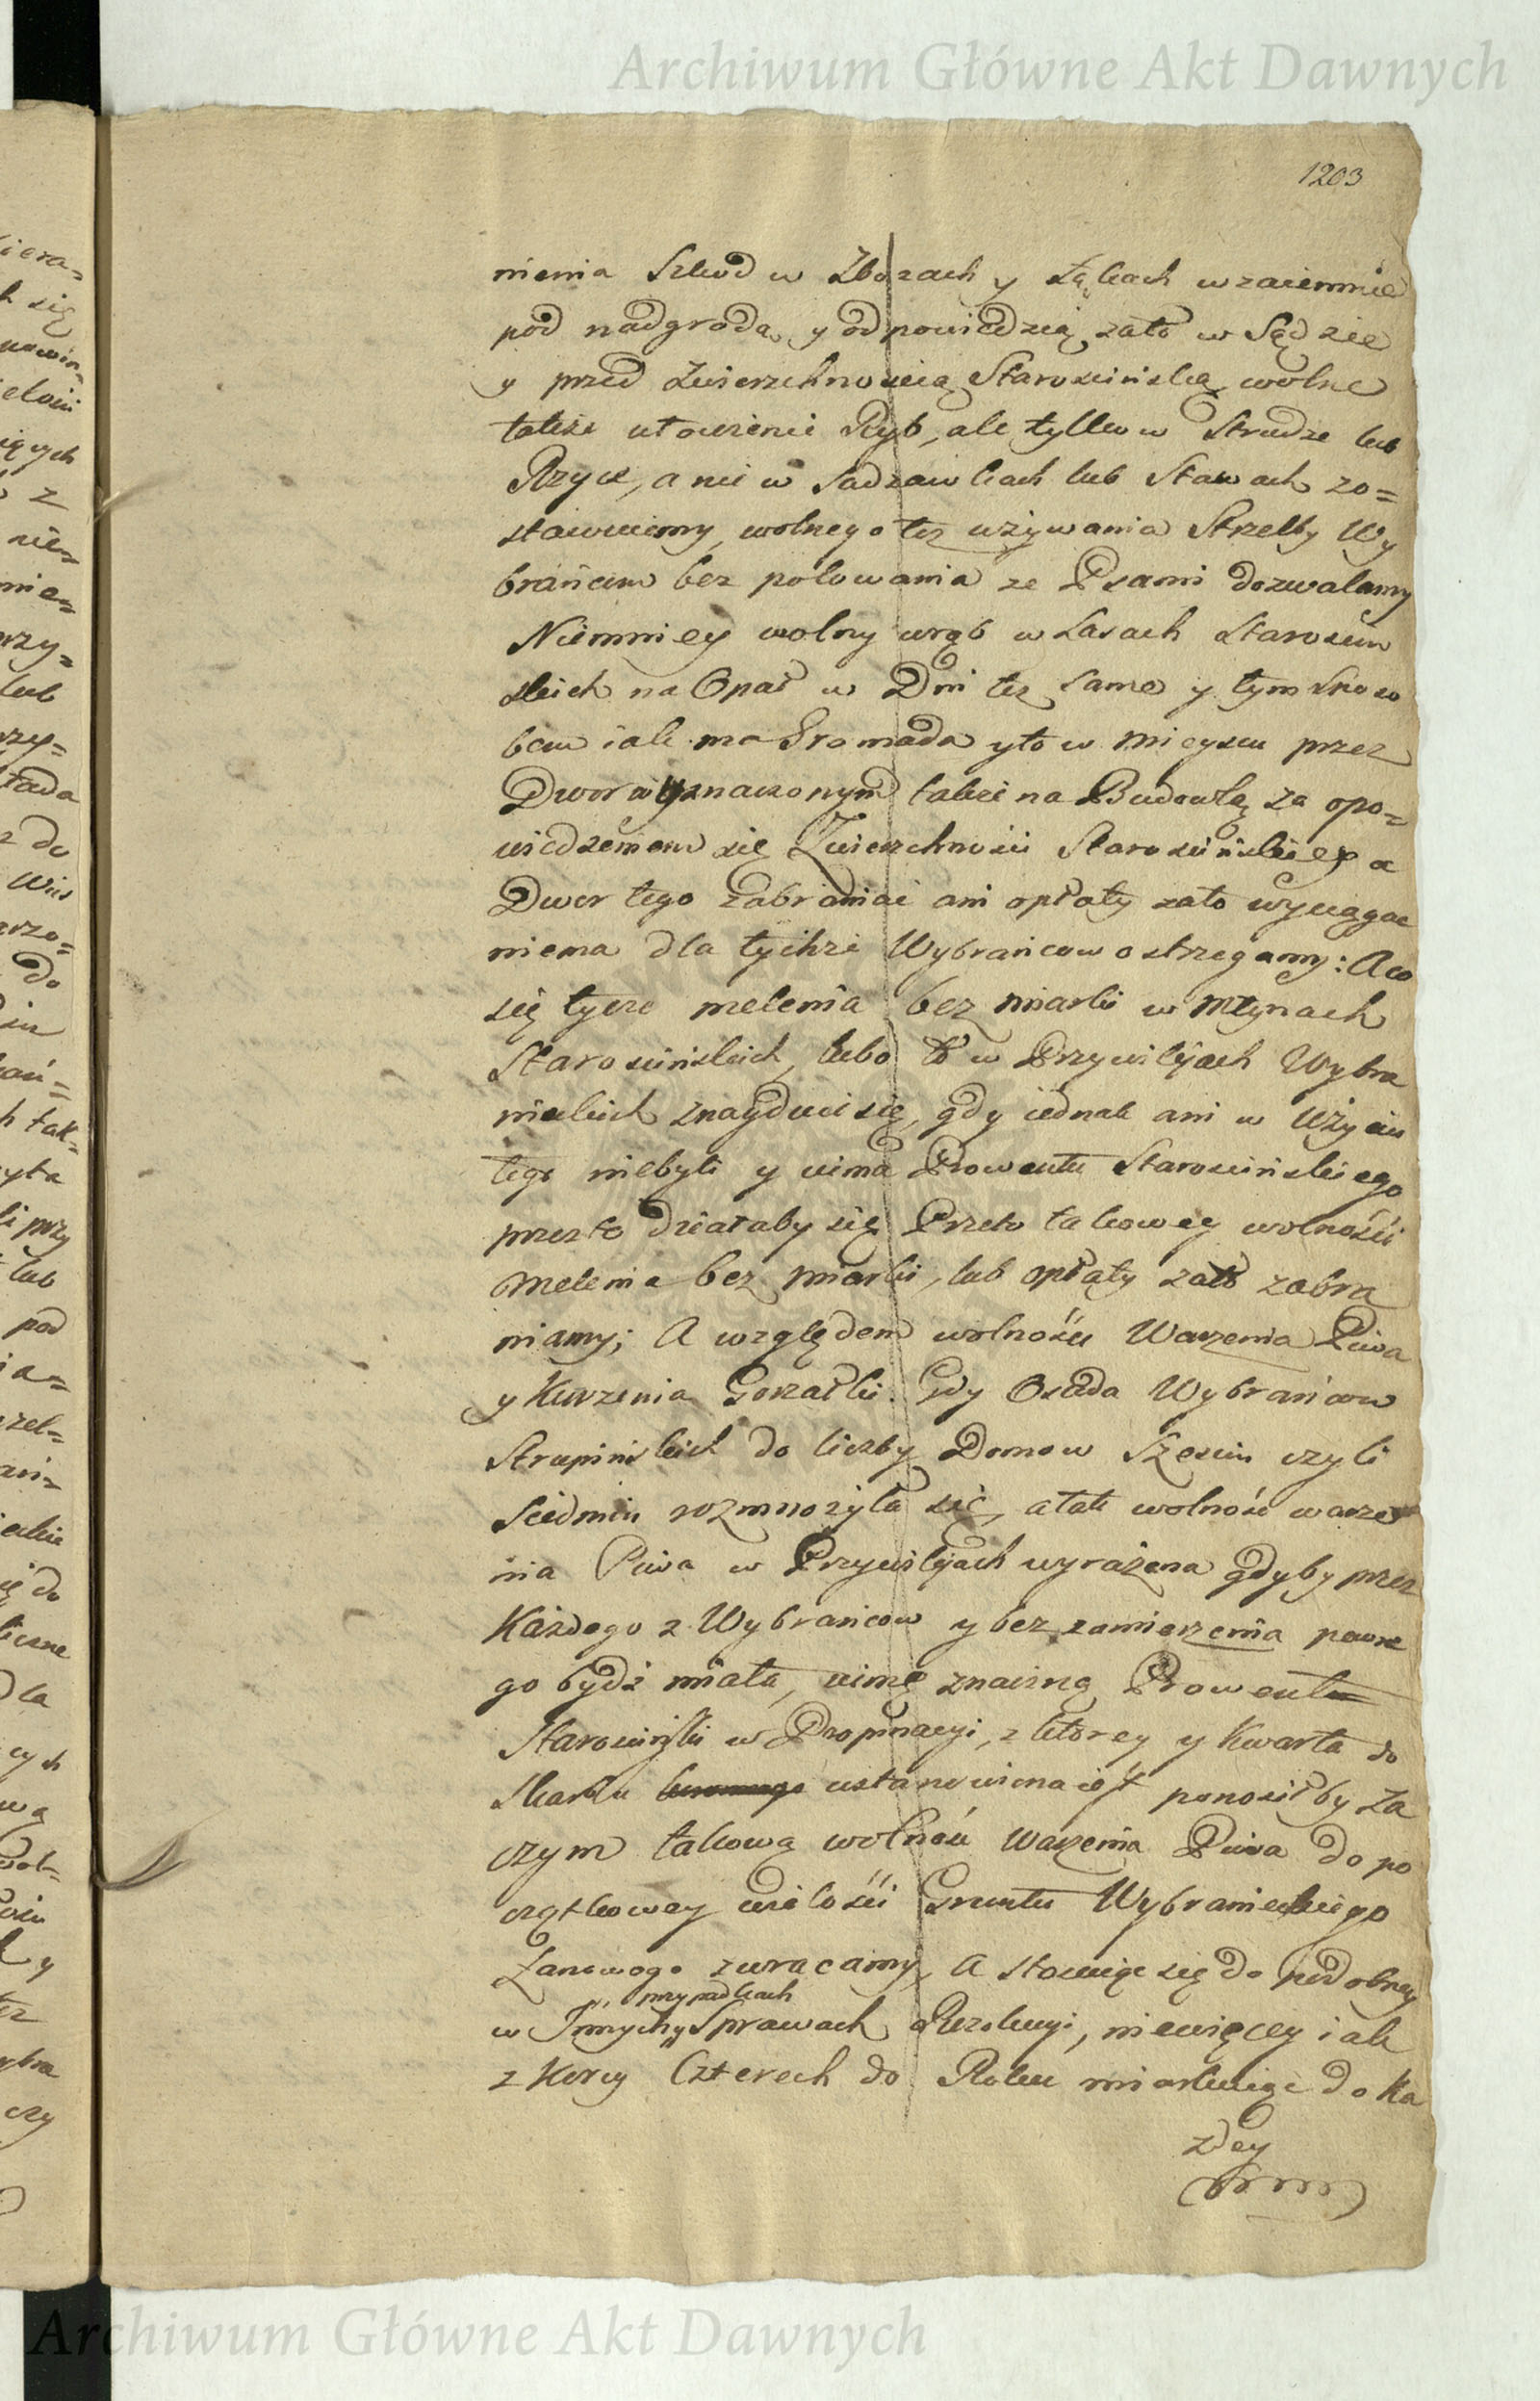 Archiwum Główne Akt Dawnych
1203
nienia Szkod w Zbozach y Łąkach wzaiemnie
pod nadgrodą y odpowiedzią zato w Sądzie
y przed Zwierzchnoscią Staroscińską wolne
także utowienie Ryb, ale tylko w Strudze lub
Rzyce, a nie w Sadzawkach lub Stawach zo=
stawuiemy, wolnego tez używania Strzelby Wy
brańcom bez polowania ze Psami dozwalamy
Niemniey wolny wrąb w Lasach Staroscin
skich na Opał w Dni tez same y tym sposo
bem iak ma Gromada yto w mieyscu przez
Dwor wyznaczonym także na Budowlą za opo=
wiedzeniem się Zwierzchności Staroscińskiey a
Dwor tego zabraniać ani opłaty zato wyciągać
niema dla tychże Wybrańcow ostrzegamy: A co
się tycze mełenia bez miarki w Młynach
Staroscińskich, lubo to w Przywilejach Wybra
nieckich znayduie się, gdy iednak ani w Użyciu
tego niebyli y uima Prowentu Staroscińskiego
przezto działaby się Przeto takowey wolności
mełenia bez miarki, lub opłaty zato zabra
niamy; A względem wolności Warzenia Piwa
y Kurzenia Gorzałki. Gdy Osada Wybrańcow
Strupińskich do liczby Domow Sześciu czyli
Siedmiu rozmnożyła się, atak wolność warze
nia Piwa w Przywilejach wyrażona gdyby przez
Każdego z Wybrańcow y bez zamierzenia pewne
go bydź miała, uimę znaczną Prowentu
Starościński w Propinacyi, z ktorey y Kwarta do
Skarbu ustanowiona iest ponosiłby Za
czym takową wolność warzenia Piwa do po
czątkowey ilości Gruntu Wybranieckiego
Łanowego zwracamy, A stosuiąc się do podobney
przypadkach
w Innych y Sprawach Rezolucyi, niewięcey iak
z Korcy Czterech do Roku miarkuiąc do Ka
zdey
Archiwum Główne Akt Dawnych